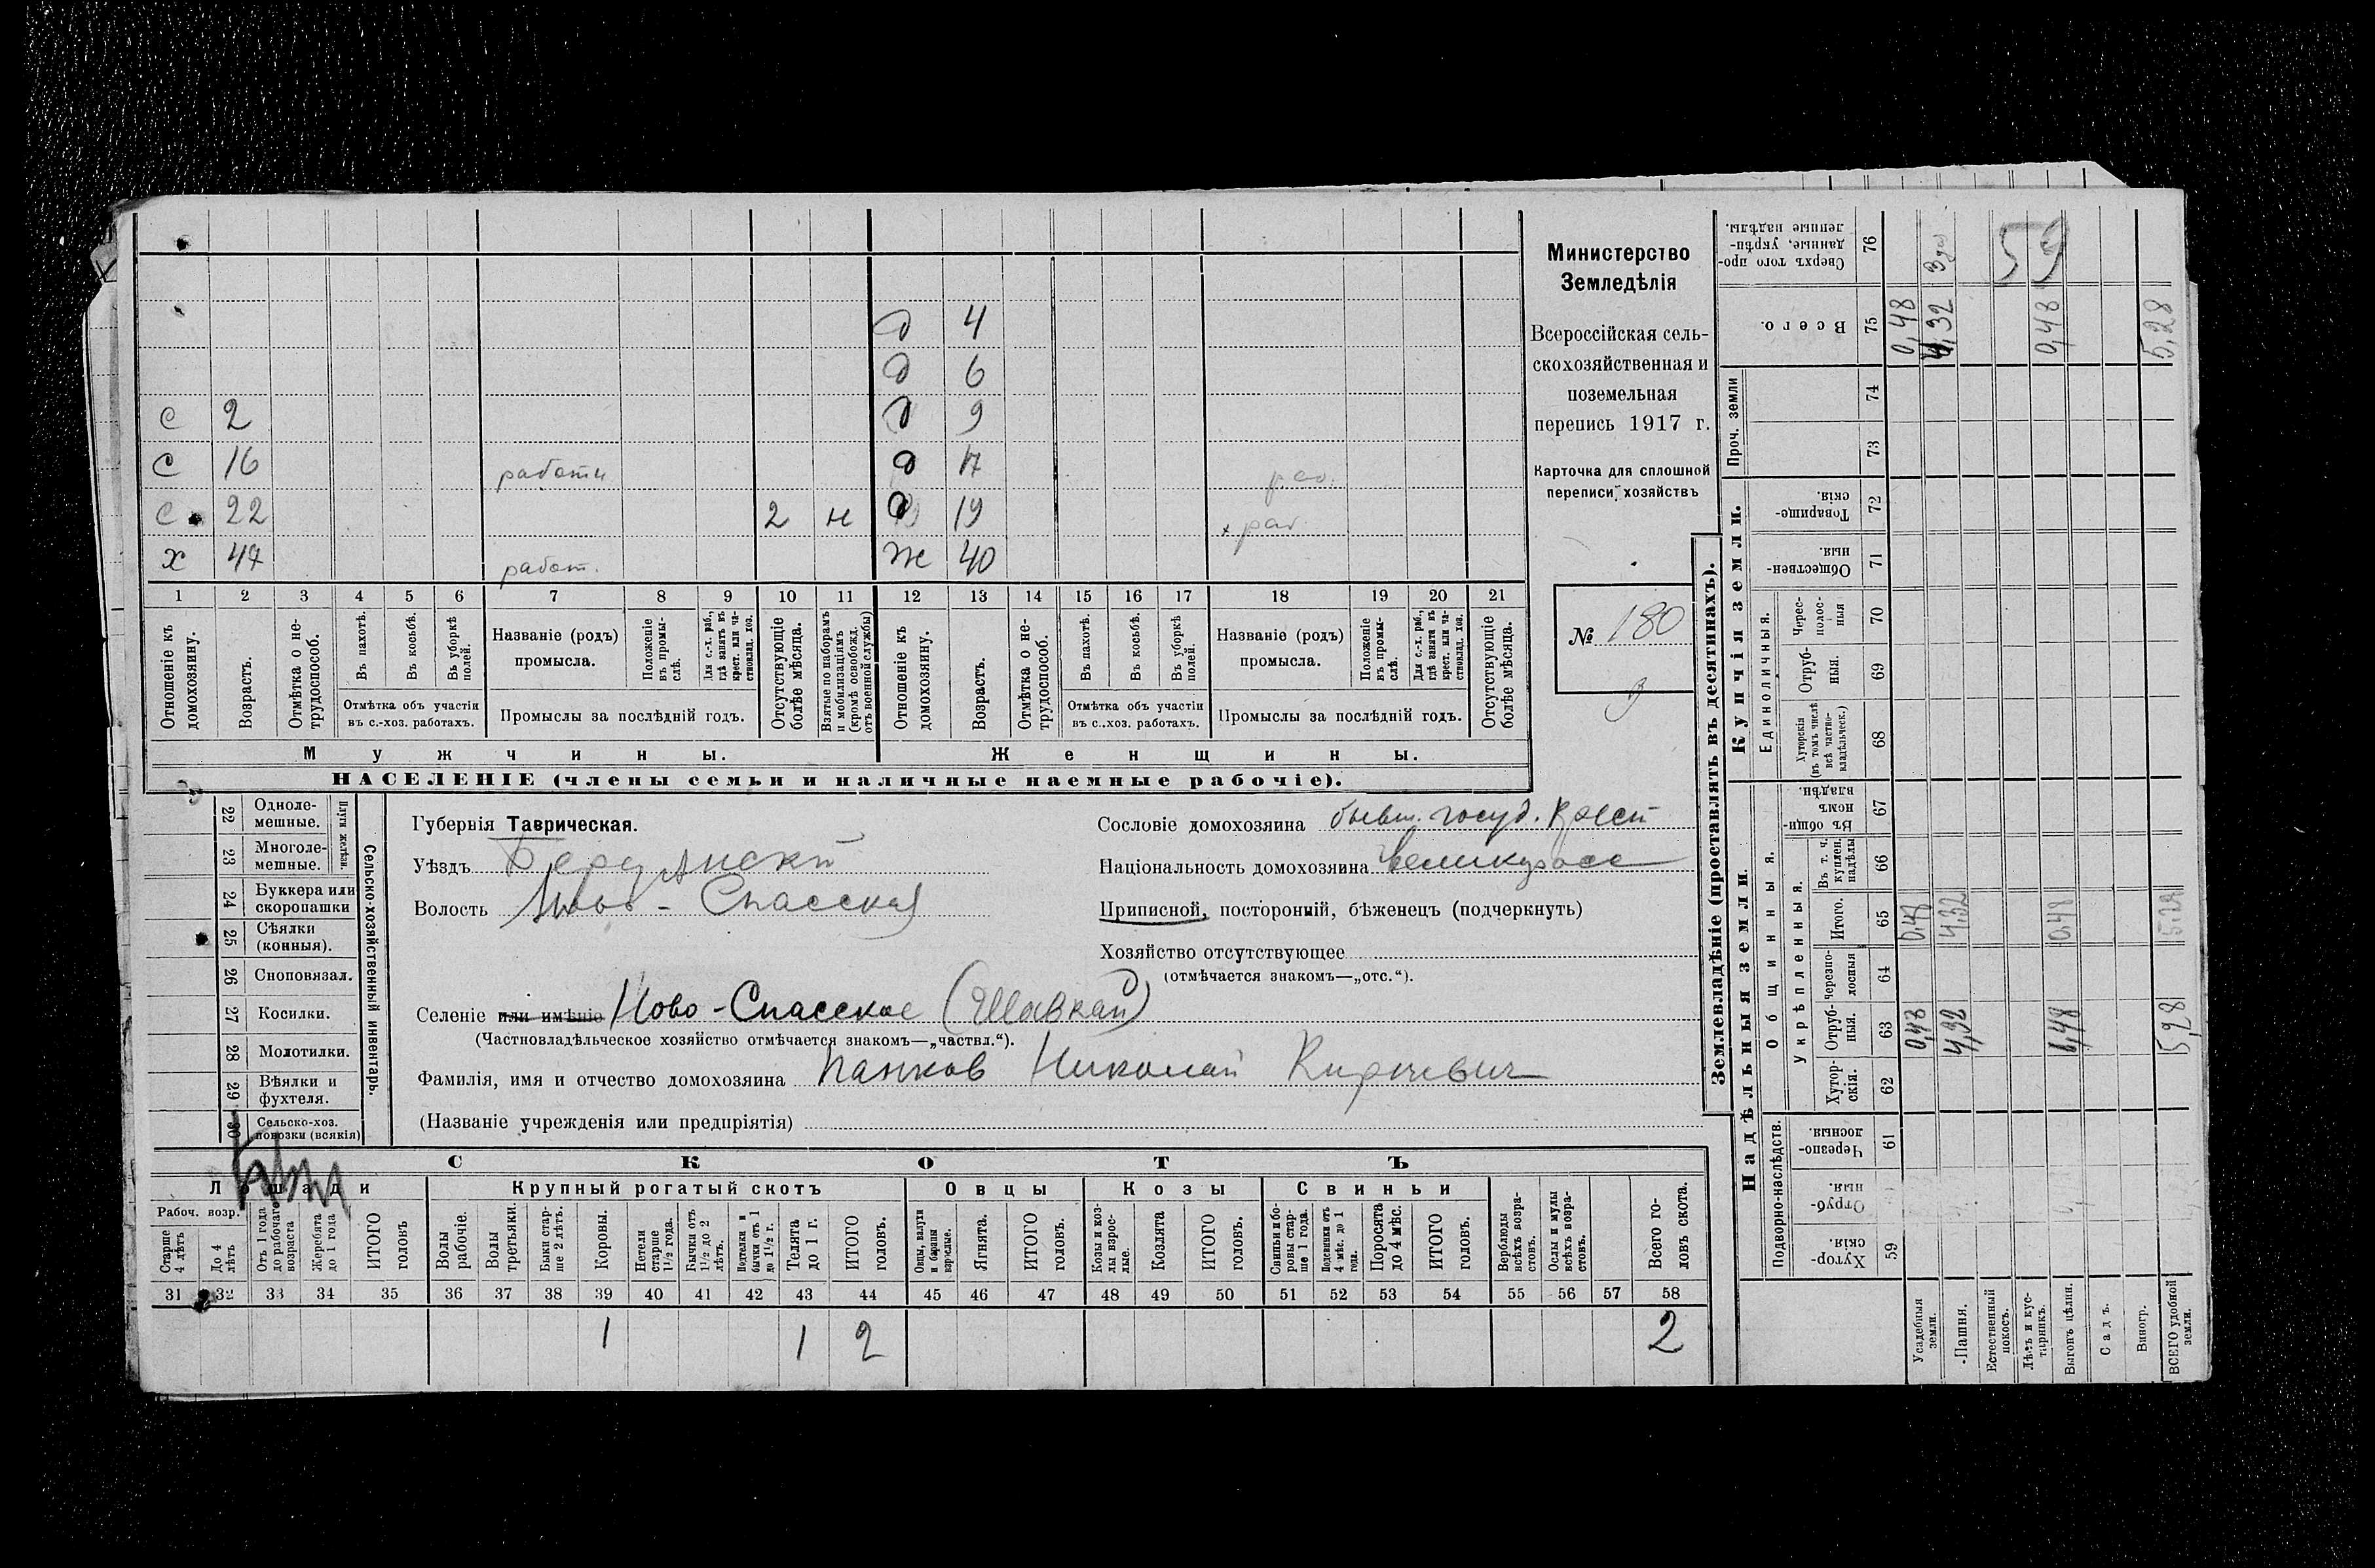 д 4
д 6
с 2 д 9
с 16 работн д 17 раб.
с. 22 2 н д 19 + раб
х 47 работ. ж 40
1 2 3 4 5 6 7 8 9 10 11 12 13 14 15 16 17 18 19 20 21
Отношеніе къ домохозяину.
Возрастъ.
Отмѣтка о не-трудоспособ.
Въ пахотѣ.
Въ косьбѣ.
Въ уборкѣ полей.
Отмѣтка объ участіи
въ с.-хоз. работахъ.
Названіе (родъ)
промысла.
Положеніе въ промы-слѣ.
Для с.-х. раб., гдѣ занятъ въ крест. или ча-стновлад. хоз.
Промыслы за послѣдній годъ.
Отсутствующіе болѣе мѣсяца.
Взятые по наборамъ и мобилизаціямъ (кромѣ освобожд. отъ военной службы)
Отношеніе къ домохозяину.
Возрастъ.
Отмѣтка о не-трудоспособ.
Въ пахотѣ.
Въ косьбѣ.
Въ уборкѣ полей.
Отмѣтка объ участіи
въ с.-хоз. работахъ.
Названіе (родъ)
промысла.
Положеніе въ промы-слѣ.
Для с.-х. раб., гдѣ занята въ крест. или ча-стновлад. хоз.
Промыслы за послѣдній годъ.
Отсутствующіе болѣе мѣсяца.
Мужчины. Женщины.
НАСЕЛЕНІЕ (члены семьи и наличные наемные рабочіе).
Министерство
Земледѣлія
Всероссійская сель-
скохозяйственная и
поземельная
перепись 1917 г.
Карточка для сплошной
переписи хозяйствъ
№ 180
22 Одноле-мешные.
23 Многоле-мешные.
Плуги желѣзн.
24 Буккера или скоропашки
25 Сѣялки (конныя).
26 Сноповязал.
27 Косилки.
28 Молотилки.
29 Вѣялки и фухтеля.
30 Сельско-хоз. повозки (всякія)
Сельско-хозяйственный инвентарь.
Губернія Таврическая.
Уѣздъ Бердянскі
Волость Ново-Спасская
Селеніе или имѣніе Ново-Спасское (Шавкай)
(Частновладѣльческое хозяйство отмѣчается знакомъ—„частвл.“).
Фамилія, имя и отчество домохозяина Панков Николай Кирѣевич
(Названіе учрежденія или предпріятія)
Сословіе домохозяина бывш. госуд. крест
Національность домохозяина великоросс
Приписной, посторонній, бѣженецъ (подчеркнуть)
Хозяйство отсутствующее
(отмѣчается знакомъ—„отс.“).
СКОТЪ
Лошади Крупный рогатый скотъ Овцы Козы Свиньи
Рабоч. возр.
Старше 4 лѣтъ
До 4 лѣтъ
Отъ 1 года до рабочаго возраста
Жеребята до 1 года
ИТОГО головъ
Волы рабочіе.
Волы третьяки.
Быки стар-ше 2 лѣтъ.
Коровы.
Нетели старше 1½ года.
Бычки отъ 1½ до 2 лѣтъ.
Подтелки и бычки отъ 1 до 1½ г.
Телята до 1 г.
ИТОГО головъ.
Овцы, валухи и бараны взрослые.
Ягнята.
ИТОГО головъ.
Козы и коз-лы взрос-лые.
Козлята
ИТОГО головъ.
Свиньи и бо-ровы стар-ше 1 года.
Подсвинки отъ 4 мѣс. до 1 года.
Поросята до 4 мѣс.
ИТОГО головъ.
Верблюды всѣхъ возра-стовъ.
Ослы и мулы всѣхъ возра-стовъ.
Всего го-ловъ скота.
31 32 33 34 35 36 37 38 39 40 41 42 43 44 45 46 47 48 49 50 51 52 53 54 55 56 57 58
1 1 2 2
Землевладѣніе (проставлять въ десятинахъ).
Надѣльныя земли
Купчія земли.
Проч. земли
Подворно-наслѣдств.
Общинныя.
Укрѣпленныя.
Единоличныя.
Хутор-скія. 59
Отруб-ныя.
Черезпо-лосныя. 61
Хутор-скія. 62
Отруб-ныя. 63
Черезпо-лосныя 64
Итого. 65
Въ т. ч. куплен. надѣлы 66
Въ общи-номъ владѣн. 67
Хуторскія (въ томъ числѣ всѣ частно-владѣльческ.) 68
Отруб-ныя. 69
Черес-полос-ныя 70
Обществен-ныя. 71
Товарище-скія. 72
73
74
Всего. 75
Сверхъ того про-данные, укрѣп-ленные надѣлы. 76
Усадебныя земли. 0,48 0,48 0,48
Пашня. 4,32 4,32 4,32
Естественный покосъ.
Лѣсъ и кус-тарникъ.
Выгонъ цѣлин. 0,48 0,48
Садъ.
Виногр.
ВСЕГО удобной земли. 5,28 5,28 5,28
59